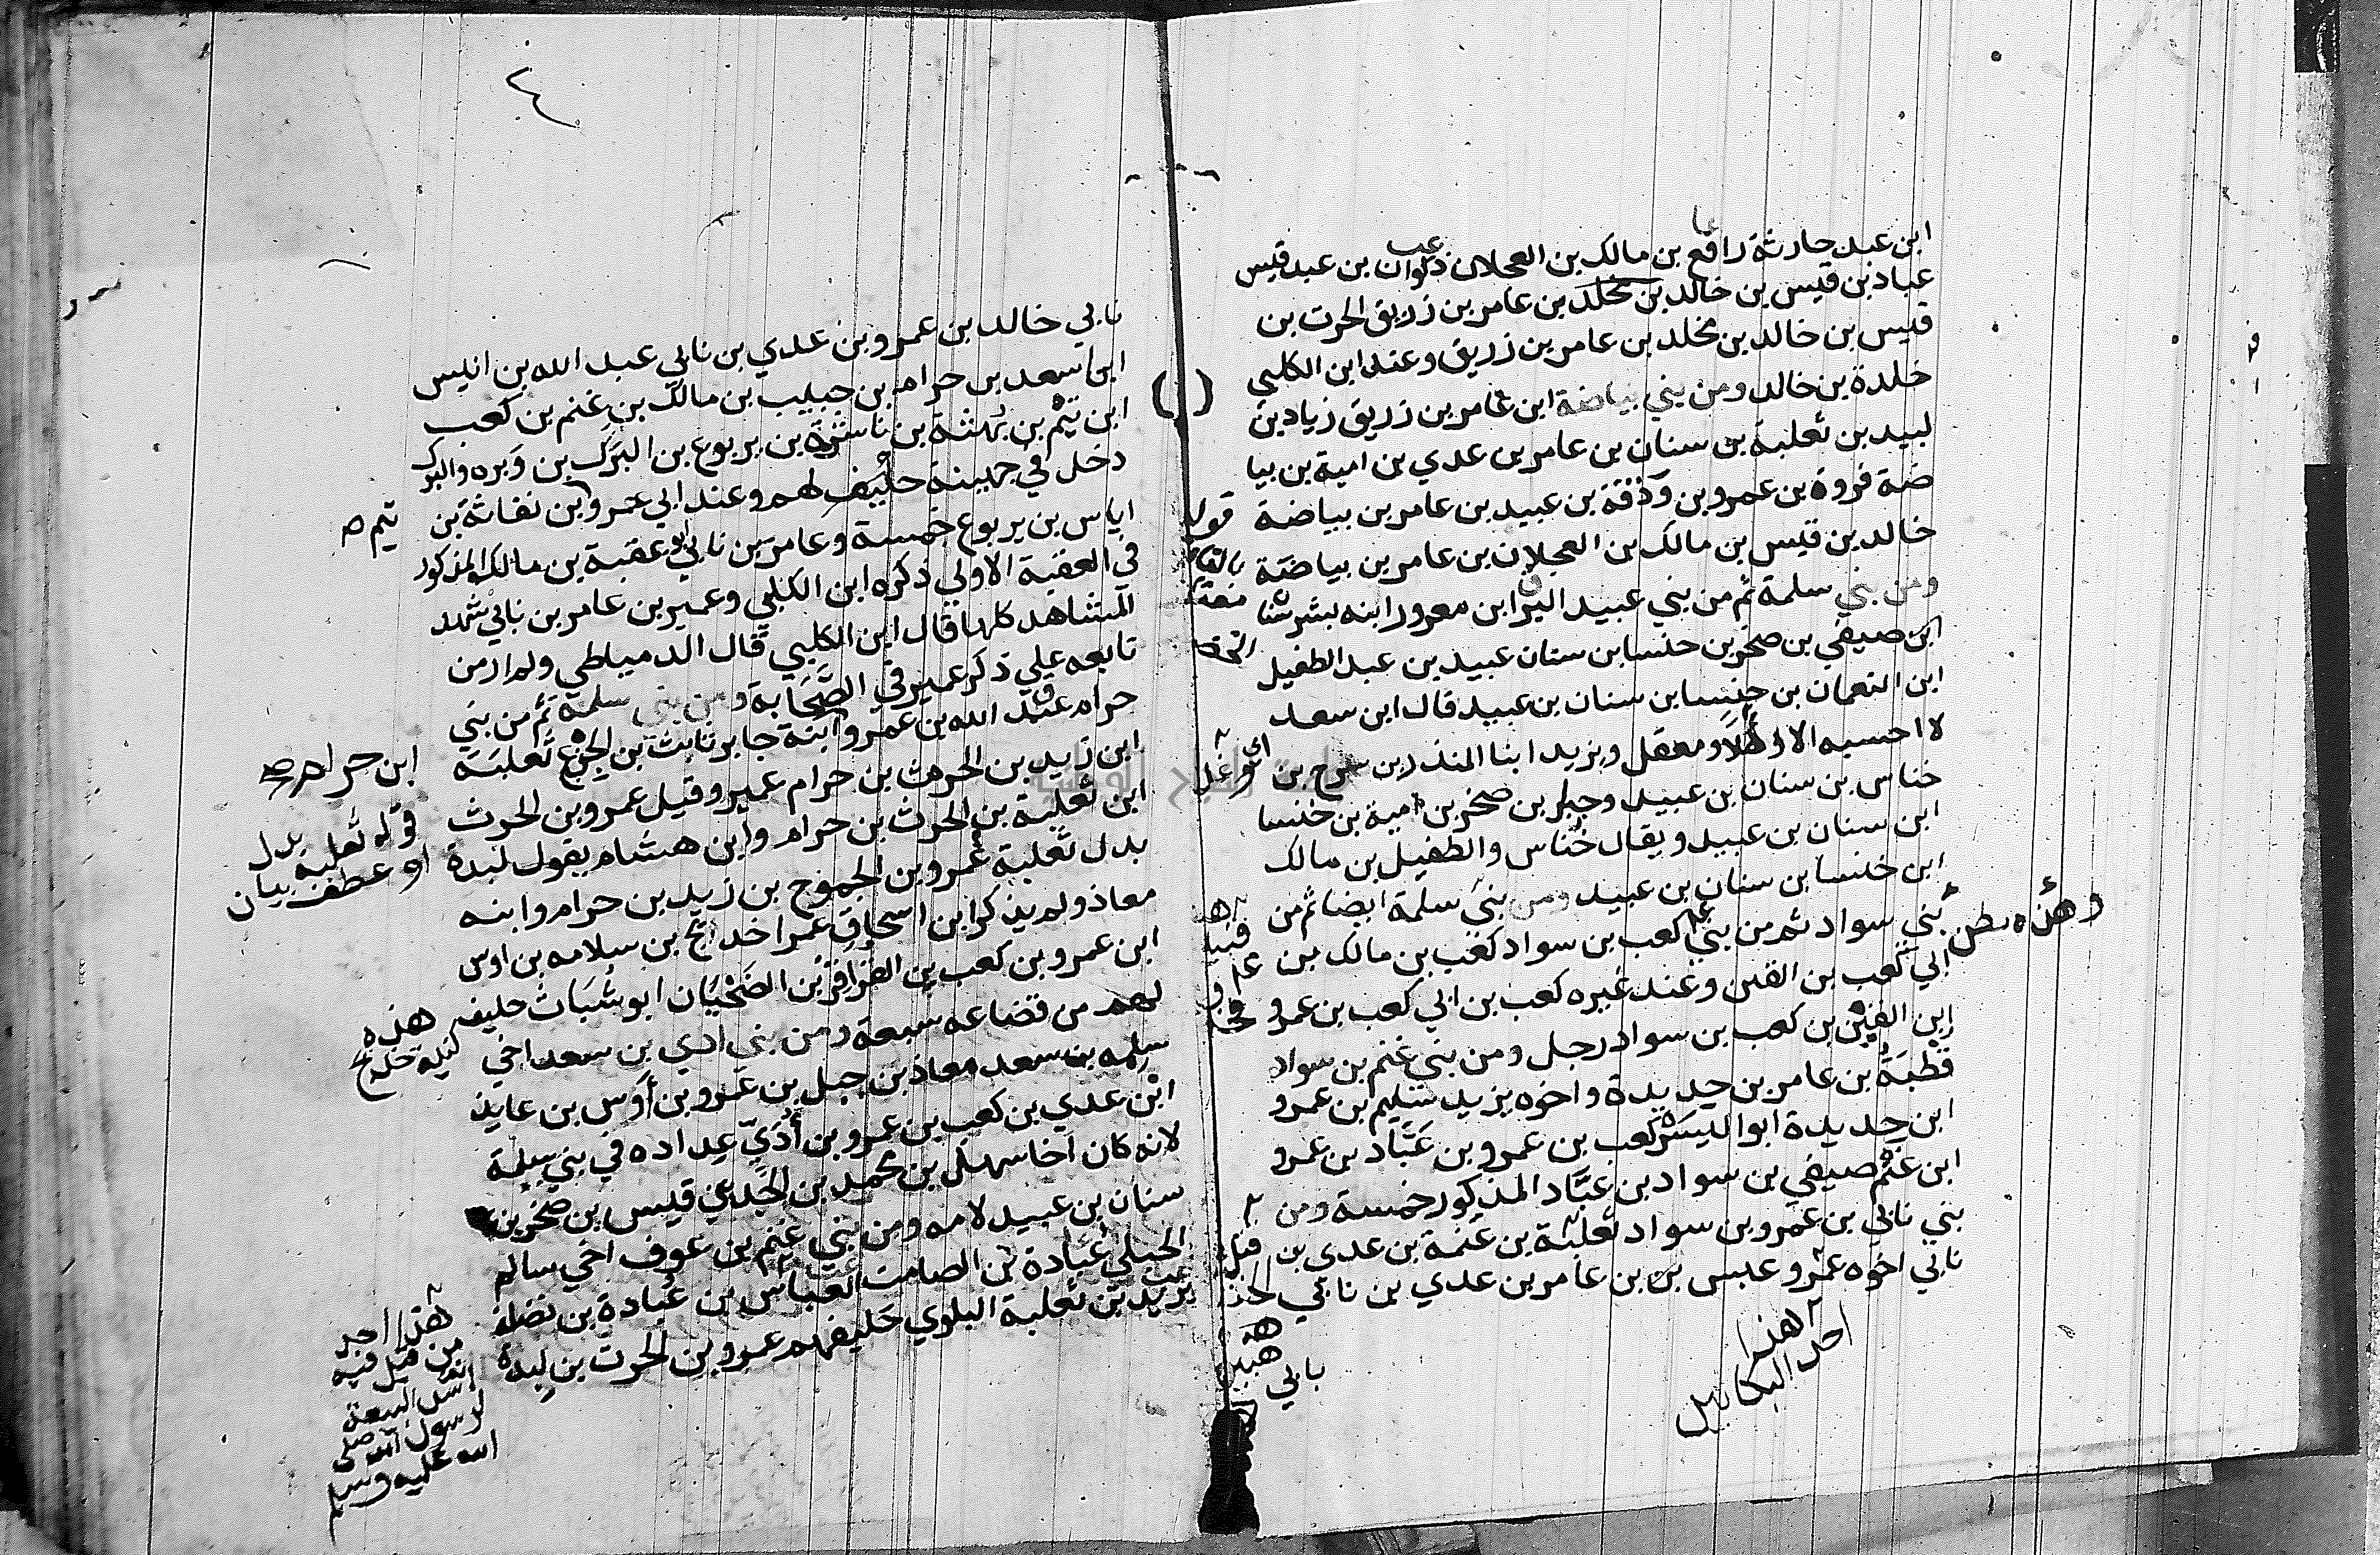 ابن عبد حارثة رافع بن مالك بن العجلان ذكوان بن عبد قيس
عباد بن قيس بن خالد بن مخلد بن عامر بن زريق الحرث بن
قيس بن خالد بن مخلد بن عامر بن زريق وعند ابن الكلبي
خلدة بن خالد ومن بني بياضة ابن عامر بن زريق زياد بن
لبيد بن ثعلبة بن سنان بن عامر بن عدي بن امية بن بيا
ضة فروة بن عمرو بن وذفة بن عبيد بن عامر بن بياضة
خالد بن قيس بن مالك بن العجلان بن عامر بن بياضة
ومن بني سلمة ثم من بني عبيد البرا ابن معرور ابنه بشر سنا
ابن صيفي بن صخر بن خنسا بن سنان عبيد بن عبد الطفيل
ابن النعمان بن خنسا بن سنان بن عبيد قال ابن سعد
لا احسبه الا ومعقل ويزيد ابنا المنذر بن سرح بن
خناس بن سنان بن عبيد وجبار بن صخر بن امية بن خنسا
ابن سنان بن عبيد ويقال خناس والطفيل بن مالك
ابن خنسا بن سنان بن عبيد ومن بني سلمة ايضا ثم من
بني سواد ثم من بني كعب بن سواد كعب بن مالك بن
ابي كعب بن القين وعند غيره كعب بن ابي كعب بن عمرو
ابن القين بن كعب بن سواد رجل ومن بني غنم بن سواد
قطبة بن عامر بن حديدة واخوه يزيد سليم ابن عمرو
ابن حديدة ابو اليسر كعب بن عمرو بن عباد بن عمرو
ابن غنم صيفي بن سواد بن عباد المذكور خمسة ومن
بني نابي بن عمرو بن سواد ثعلبة بن غنمة بن عدي بن
نابي اخوه عمرو عبس بن بن عامر بن عدي بن نابي
وهذه بطن
هذا
احد البكايين
نابي خالد بن عمرو بن عدي بن نابي عبد الله بن انيس
ابن اسعد بن حرام بن حبيب بن مالك بن غنم بن كعب
ابن تيم بن بهثة بن ناشرة بن يربوع بن البرك بن وبره والبرك
دخل في جهينة حليف لهم وعند ابي عمرو بن نفاثة بن
اياس بن يربوع خمسة وعامر بن نابي عقبة بن مالك المذكور
في العقبة الاولى ذكره ابن الكلبي وعمير بن عامر بن نابي شهد
المشاهد كلها قال ابن الكلبي قال الدمياطي ولم ار من
تابعه علي ذكر عمير في الصحابة ومن بني سلمة ثم من بني
حرام عبد الله بن عمرو ابنه جابر ثابت بن الجذع ثعلبة
ابن زيد بن الحرث بن حرام عمير وقيل عمرو بن الحرث
ابن ثعلبة بن الحرث بن حرام وابن هشام يقول لبدة
بدل ثعلبة عمرو بن الجموح بن زيد بن حرام وابنه
معاذ ولم يذكر ابن اسحاق عمرا خديج بن سلامه بن اوس
ابن عمرو بن كعب بن القراقر بن الضحيان ابو شباث حليف
لهم من قضاعه سبعة ومن بني ادي بن سعد اخي
سلمه بن سعد معاذ بن جبل بن عمرو بن اوس بن عايذ
ابن عدي بن كعب بن عمرو بن أدي عداده في بني سلمة
لانه كان اخا سهل بن محمد بن الجد بن قيس بن صخر بن
سنان بن عبيد لامه ومن بني غنم بن عوف اخي سالم
الحبلي عبادة بن الصامت العباس بن عبادة بن نضلة
يزيد بن ثعلبة البلوي حليفهم عمرو بن الحرث بن لبدة
تيم
ابن حرام
قوله ثعلبة بدل
او عطف بيان
هذه
كنية خديج
هذا احد
من قيل فيه
لرسول الله صلى
الله عليه وسلم